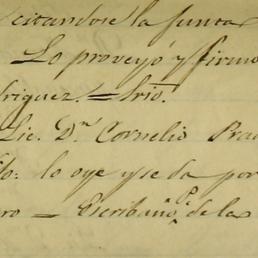 citandose la Junta
Lo proveyó y firmo
driguez. = Srio.
Lic. Dn. Cornelio Pra
lo oye y se da por
ro = Escribano P. de la